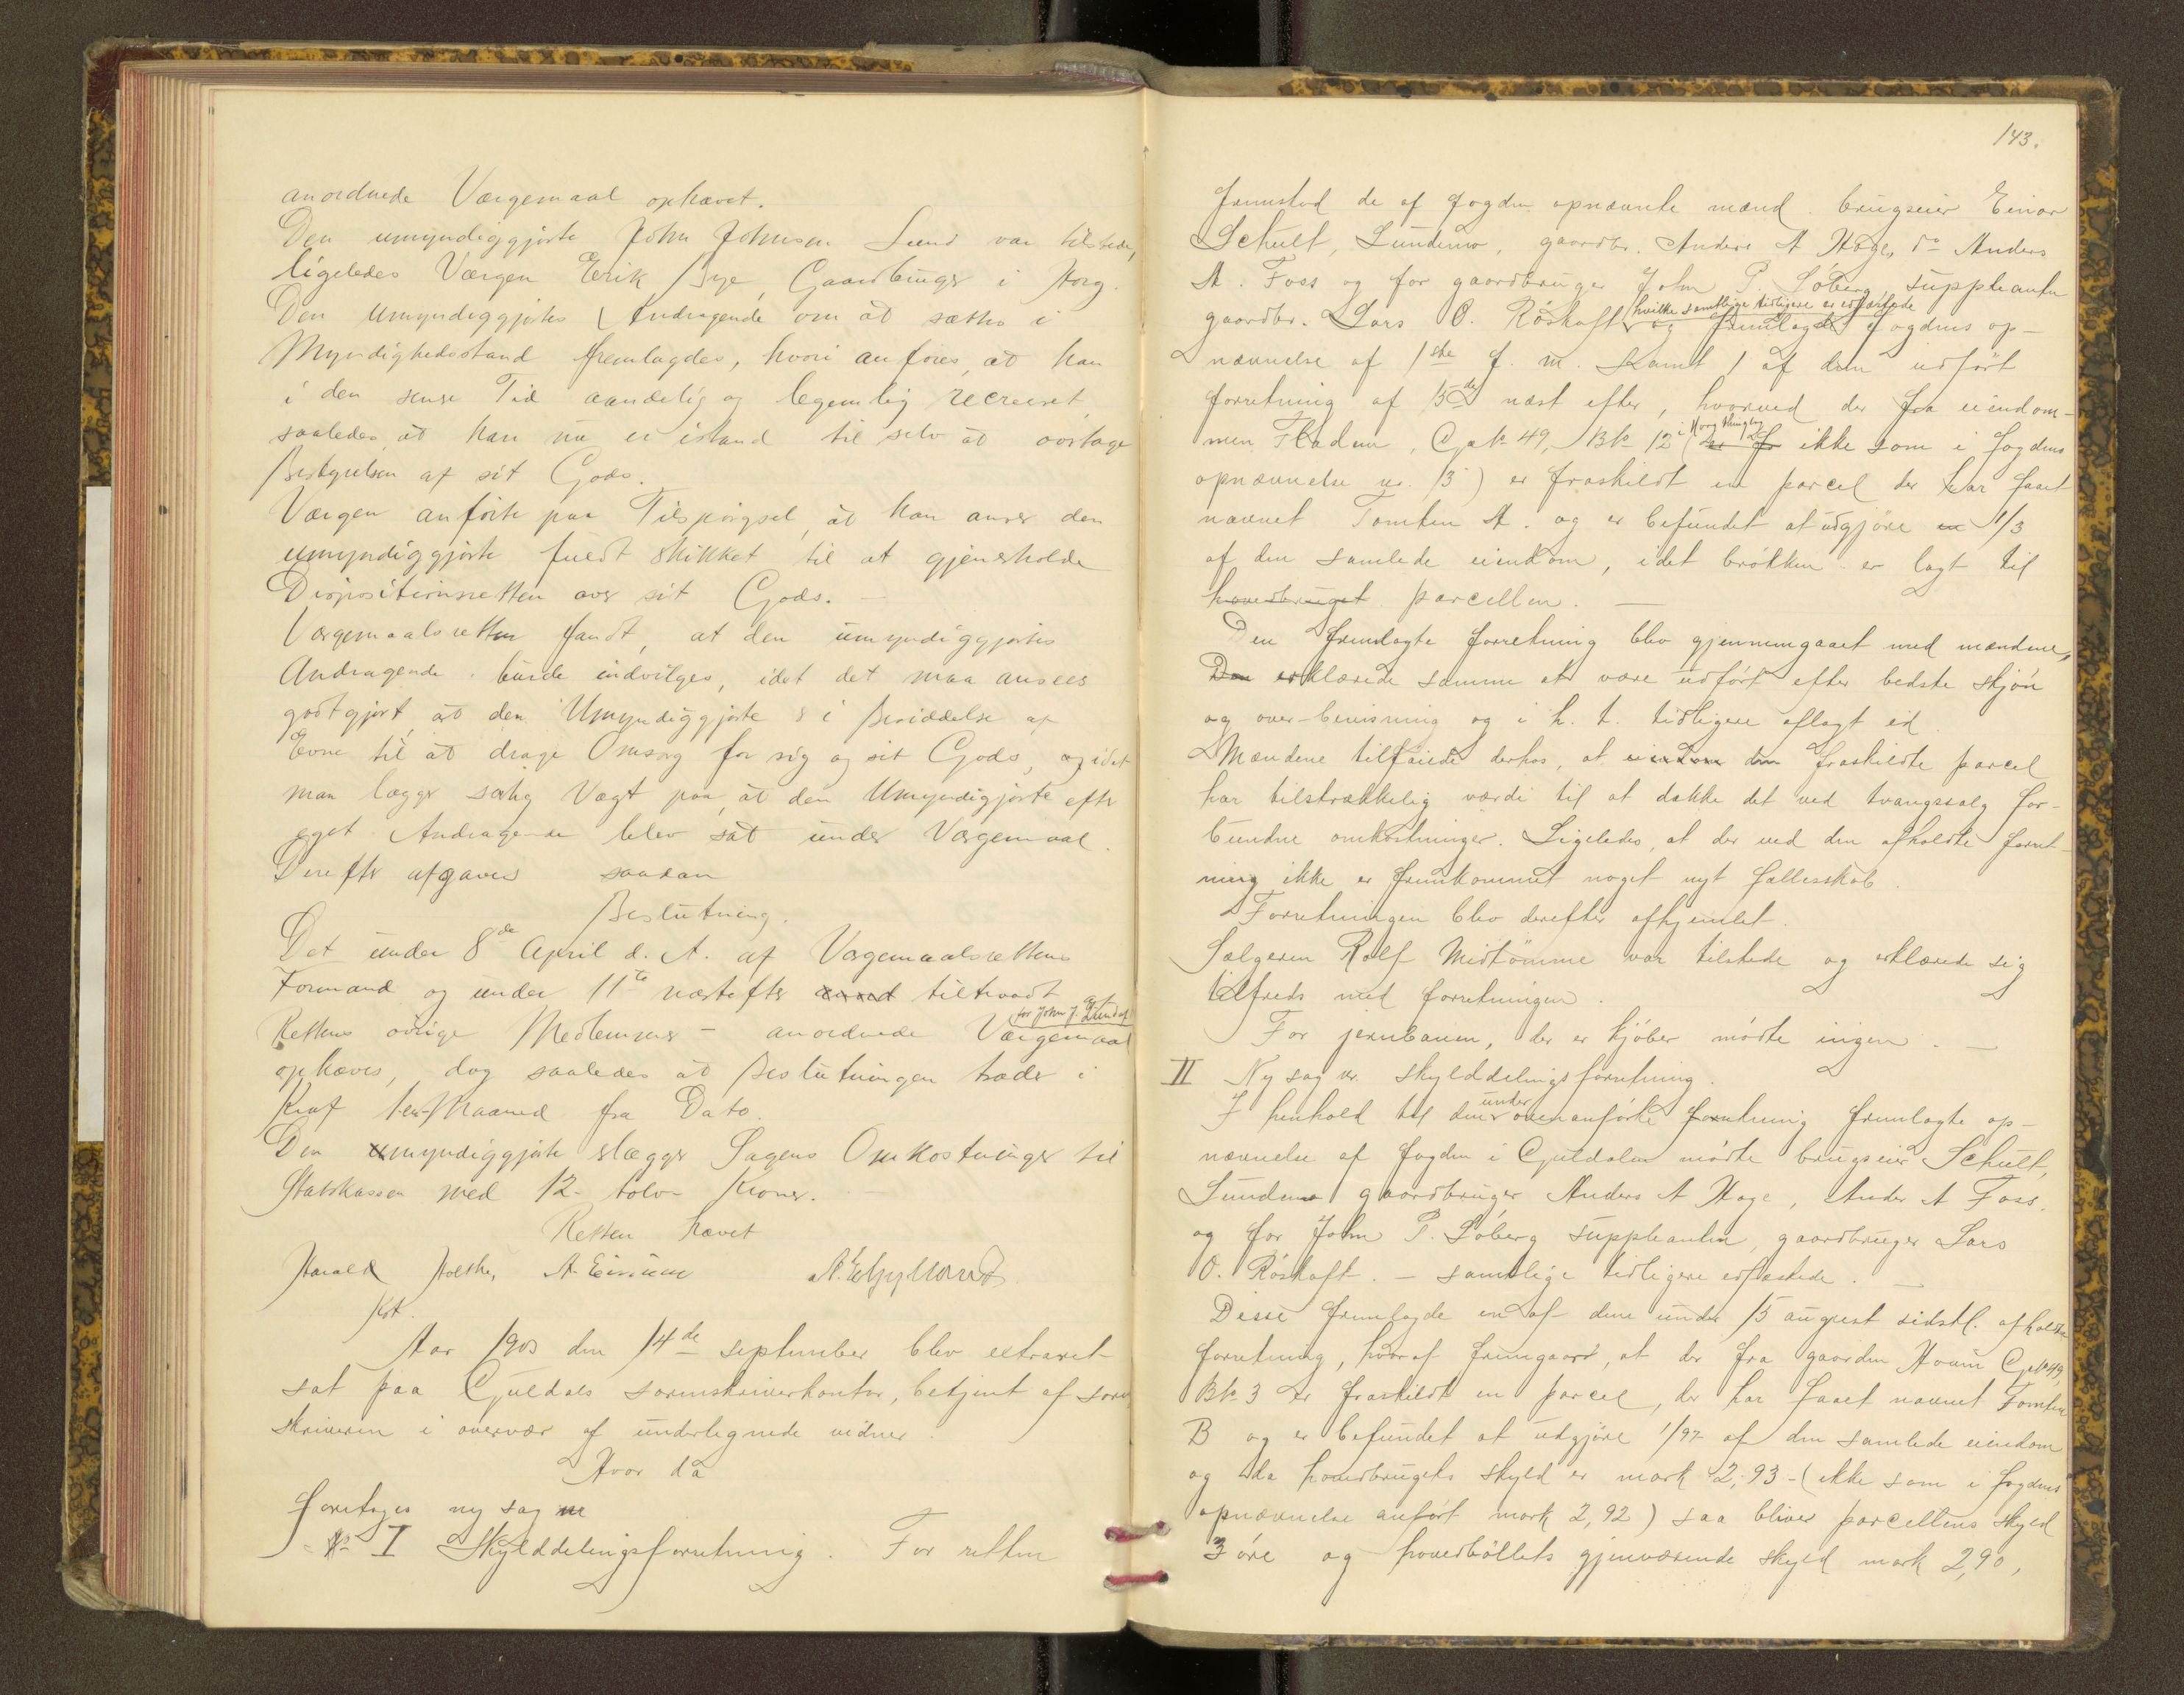 anordnede Værgemaal ophævet.
Den umyndiggjorte John Johnsen Lund var tilstede,
ligeledes Værgen Erik Bye, Gaardbruger i Horg.
Den Umyndiggjortes Andragende om at sættes i
Myndighedsstand fremlagdes, hvori anføres, at han
i den senere Tid aandelig og legemlig recreeret,
saaledes at han nu er istand til selv at overtage
Bestyrelsen af sit Gods.
Værgen anførte paa Tilspørgsel, at han anser den
umyndiggjorte fuldt skikket til at gjenerholde
Dispositionsretten over sit Gods. —
Værgemaalsretten fandt, at den umyndiggjortes
Andragende burde indvilges, idet det maa ansees
godtgjort, at den Umyndiggjorte er i Besiddelse af
Evne til at drage Omsorg for sig og sit Gods, og idet
man lægger særlig Vægt paa, at den Umyndigjorte efter
eget Andragende blev sat under Værgemaal.
Derefter afgaves saadan
Beslutning.
Det under 8de April d. A. af Værgemaalsrettens
Formand og under 11te næstefter tiltraadt af
Rettens øvrige Medlemmer – anordnede for John J. Lund Værgemaal
ophæves, dog saaledes at Beslutningen træder i
Kraft 1 en Maaned fra Dato.
Den umyndiggjorte erlægger Sagens Omkostninger til
Statskassen med 12 – tolv – Kroner. —
Retten hævet
Harald A. Eirium
Kst.
Aar 1903 den 14de september blev extraret
sat paa Guldals sorenskriverkontor, betjent af soren
skriveren i overvær af undertegnede vidner.
Hvor da
foretages ny sag
No I Skylddelingsforretning. For retten
143.
fremstod de af fogden opnævnte mænd. brugseier Einar
Schult, Sundmo, gaardbr. Anders A Hage, do Anders
A. Foss og for gaardbruger John P. Søberg, suppleanten
hvilke samtlige tidligere er edfæstede
gaardbr. Lars O. Røskaft og fremlagde fogdens op-
nævnelse af 1ste f. m. samt 1 af dem udført
forretning af 15de næst efter, hvorved der fra eiendom-
i Horg thinglag
men Fladen, G. No 49, Bk 12 (ikke som i fogdens
opnævnelse nr. 13) er fraskildt en parcel der har faaet
navnet Tomten A. og er befundet at udgjøre 1/3
af den samlede eiendom, idet brøkken er lagt til
hovedbruget parcellen. —
Den fremlagte forretning blev gjennemgaaet med mændene,
Den erklærede samme at være udført efter bedste skjøn
og over-bevisning og i h. t. tidligere aflagt ed
Mændene tilføiede derhos, at eiendom den fraskildte parcel
har tilstrækkelig værdi til at dække det ved tvangssalg for-
bundne omkostninger. Ligeledes, at der ved den afholdte forret-
ning ikke er fremkommet noget nyt fællesskab.
Forretningen blev derefter afhjemlet.
Sælgeren Rolf Midtømme var tilstede og erklærede sig
tilfreds med forretningen.
For jernbanen, der er kjøber mødte ingen. —
II Ny sag nr. skylddelingsforretning.
under
I henhold til den ovenanførte forretning fremlagte op-
nævnelse af fogden i Guldalen mødte brugseier Schult,
Sundmo gaardbruger Anders A Hage, Anders A Foss.
og for John P. Søberg suppleanten, gaardbruger Lars
O. Røskaft. – samtlige tidligere edfæstede. —
Disse fremlagde en af dem under 15 august sidstl. afholdte
forretning, hvoraf fremgaar, at der fra gaarden Hovin G. No 49,
Bk 3 er fraskildt en parcel, der har faaet navnet Tomten
B og er befundet at udgjøre 1/97 af den samlede eiendom
og da hovedbrugets skyld er mark 2,93 – (ikke som i fogdens
opnævnelse anført mark 2,92) saa bliver parcellens skyld
3 øre og hovedbøllets gjenværende skyld mark 2,90,